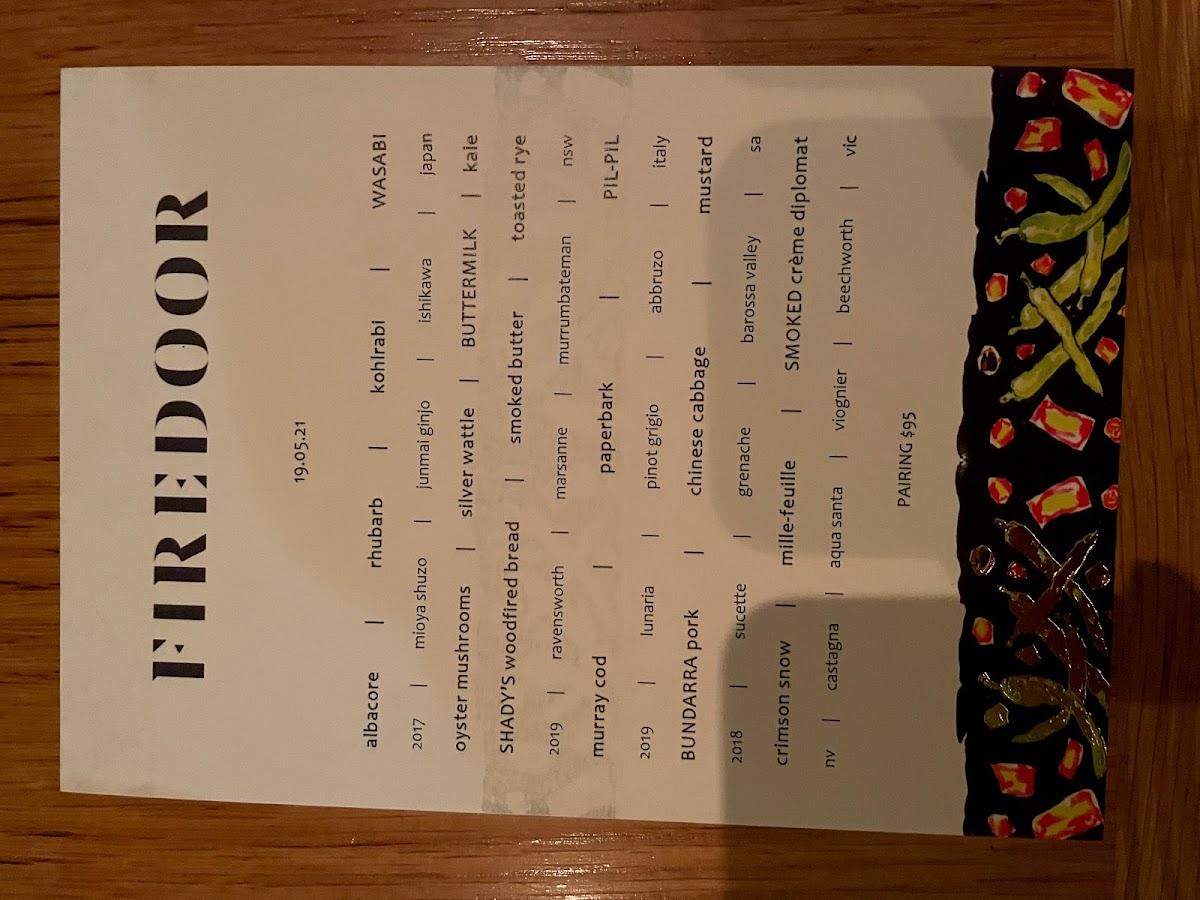 FIREDOOR
19.05.21
albacore | rhubarb | kohlrabi | WASABI
2017 | mioya shuzo | junmai ginjo | ishikawa | japan
oyster mushrooms | silver wattle | BUTTERMILK | kale
SHADY'S woodfired bread | smoked butter | toasted rye
2019 | ravensworth | marsanne | murrumbateman | nsw
murray cod | paperbark | PIL-PIL
2019 | lunaria | pinot grigio | abbruzo | italy
BUNDARRA pork | chinese cabbage | mustard
2018 | sucette | grenache | barossa valley | sa
crimson snow | mille-feuille | SMOKED crème diplomat
nv | castagna | aqua santa | viognier | beechworth | vic
PAIRING $95